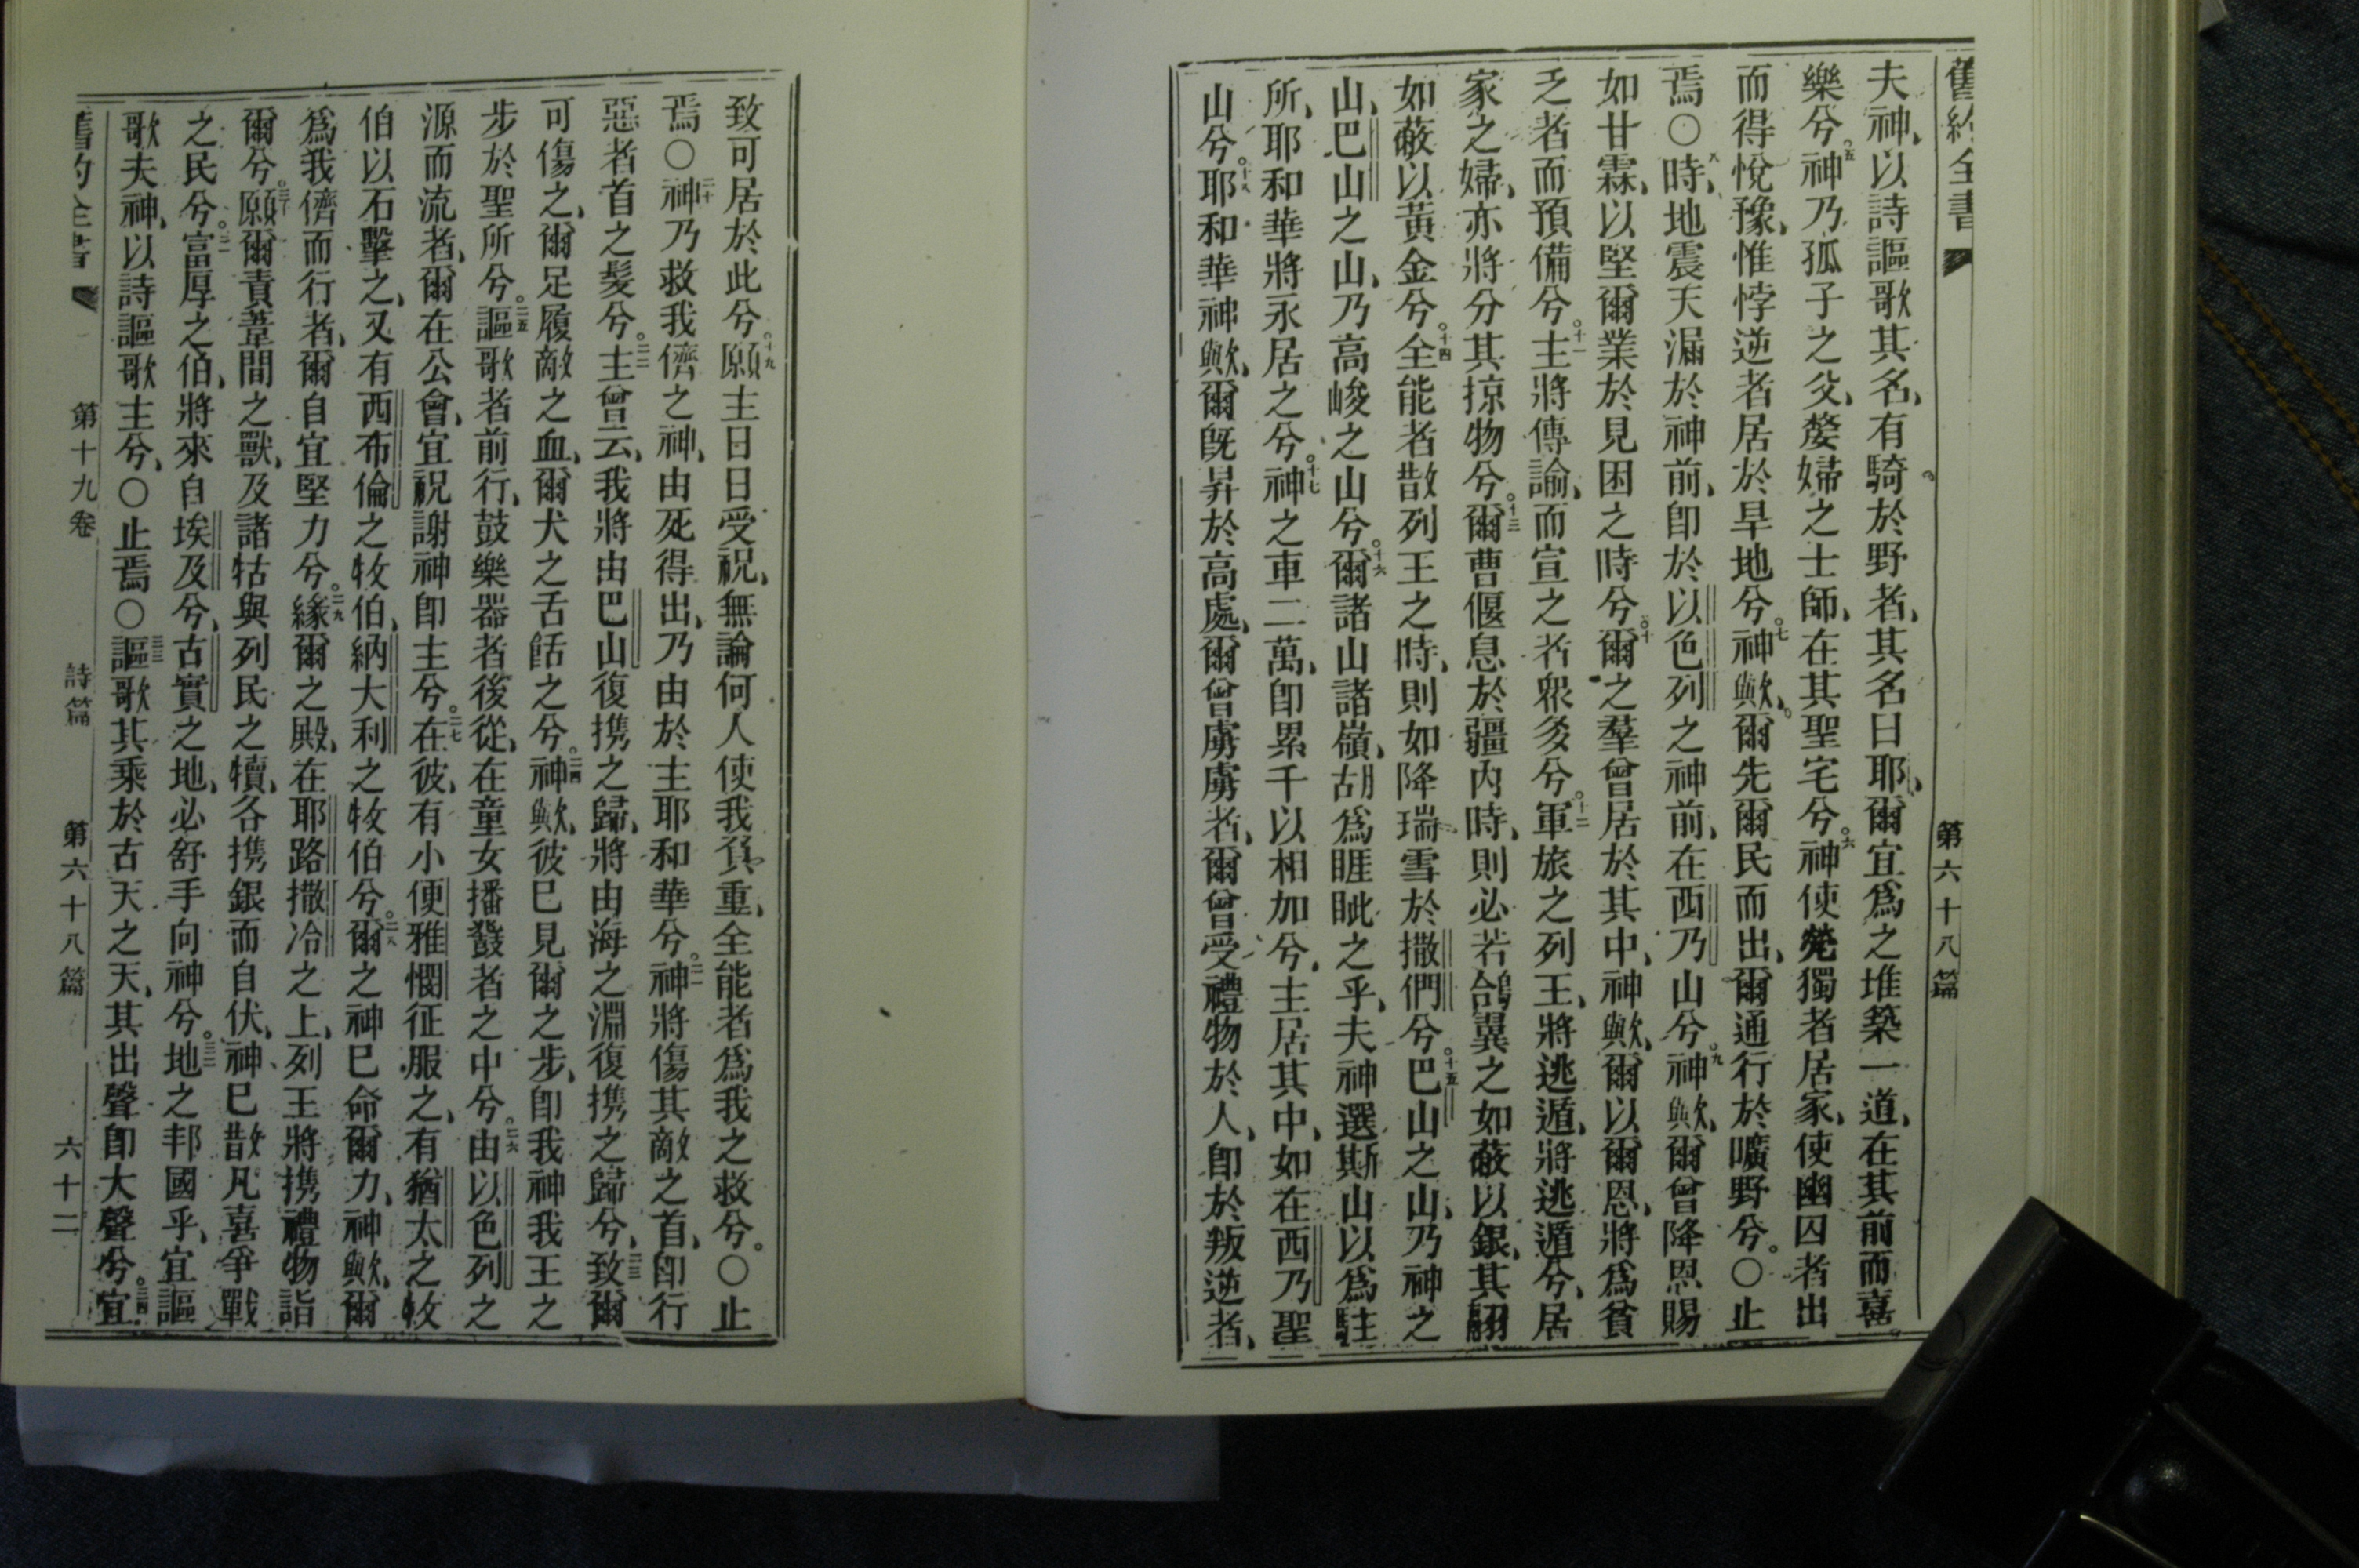 舊約全書 第六十八篇
夫神、以詩謳歌其名、有騎於野者、其名曰耶、爾宜爲之堆築一道、在其前而喜
樂兮。五神乃孤子之父、嫠婦之士師、在其聖宅兮。六神使煢獨者居家、使幽囚者出
而得悅豫、惟悖逆者居於旱地兮。七神歟、爾先爾民而出、爾通行於曠野兮。○止
焉○八時、地震天漏於神前、卽於以色列之神前、在西乃山兮。九神歟、爾曾降恩賜
如甘霖、以堅爾業於見困之時兮。十爾之羣曾居於其中、神歟、爾以爾恩、將爲貧
乏者而預備兮。十一主將傳諭、而宣之者衆多兮。十二軍旅之列王、將逃遁、將逃遁兮、居
家之婦、亦將分其掠物兮。十三爾曹偃息於疆內時、則必若鴿翼之如蔽以銀、其翮
如蔽以黃金兮。十四全能者散列王之時、則如降瑞雪於撒們兮。十五巴山之山、乃神之
山、巴山之山、乃高峻之山兮。十六爾諸山諸嶺、胡爲睚眦之乎、夫神選斯山以爲駐
所、耶和華將永居之兮。十七神之車二萬、卽累千以相加兮、主居其中、如在西乃聖
山兮。十八耶和華神歟、爾旣昇於高處、爾曾虜虜者、爾曾受禮物於人、卽於叛逆者、
致可居於此兮。十九願主日日受祝、無論何人使我負重、全能者爲我之救兮。○止
焉○二十神乃救我儕之神、由死得出、乃由於主耶和華兮。二一神將傷其敵之首、卽行
惡者首之髮兮。二二主曾云、我將由巴山復携之歸、將由海之淵復携之歸兮、二三致爾
可傷之、爾足履敵之血、爾犬之舌餂之兮。二四神歟、彼已見爾之步、卽我神我王之
步於聖所兮。二五謳歌者前行、鼓樂器者後從、在童女播鼗者之中兮。二六由以色列之
源而流者、爾在公會、宜祝謝神卽主兮。二七在彼、有小便雅憫征服之、有猶太之牧
伯以石擊之、又有西布倫之牧伯、納大利之牧伯兮。二八爾之神已命爾力、神歟、爾
爲我儕而行者、爾自宜堅力兮。二九緣爾之殿、在耶路撒冷之上、列王將携禮物詣
爾兮。三十願爾責葦間之獸、及諸牯與列民之犢、各携銀而自伏、神已散凡喜爭戰
之民兮。三一富厚之伯、將來自埃及兮、古實之地、必舒手向神兮。三二地之邦國乎、宜謳
歌夫神、以詩謳歌主兮、○止焉○三三謳歌其乘於古天之天、其出聲卽大聲兮。三四宜
舊約全書 第十九卷 詩篇 第六十八篇 六十二